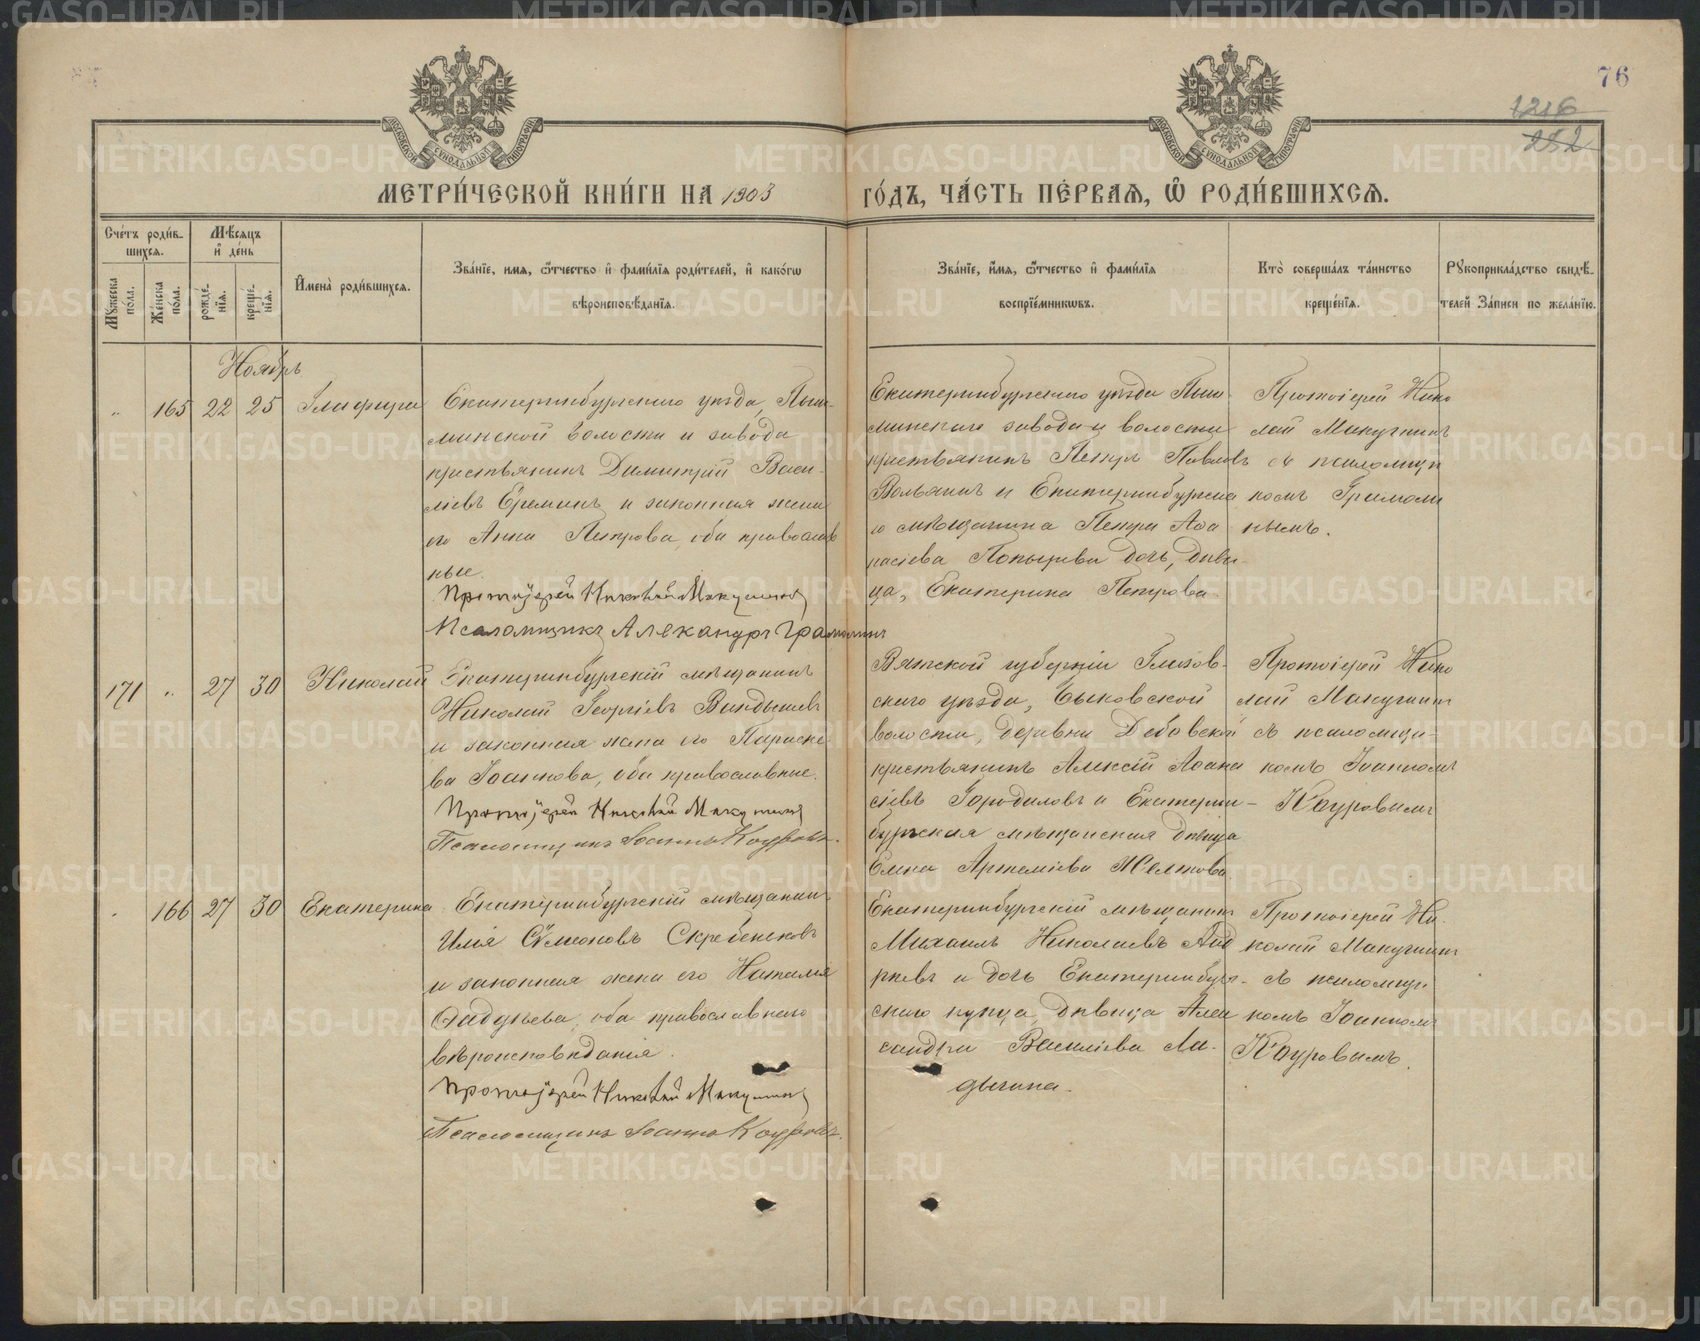 76
1216
252
МЕТРИ́ЧЕСКОЙ КНИ́ГИ НА 1903 ГО́ДЪ, ЧА́СТЬ ПЕ́РВАЯ, Ѿ РОДИ́ВШИХСѦ.
Сче́тъ роди́в-
шихся.
Мѣ́сяцъ
и҆ де́нь
Мꙋ́жеска
по́ла.
Же́нска
по́ла.
рожде́-
нїѧ.
креще́-
нїѧ.
И҆мена̀ роди́вшихся.
Зва́нїе, имя, ѻ҆́тчество и҆ фами́лїѧ роди́телей, и҆ како́гѡ
вѣроисповѣ́данїѧ.
Зва́нїе, и҆́мѧ, ѻ҆́тчество и҆ фами́лїѧ
воспрїе́мникѡвъ.
Кто̀ соверша́лъ та́инство
креще́нїѧ.
Рꙋкоприкла́дство свидѣ́-
телей За́писи по жела́нїю.
Ноябрь
" 165 22 25 Глафира
Екатеринбургскаго уѣзда, Пыш-
минской волости и завода
крестьянинъ Димитрій Васи-
ліевъ Ереминъ и законная жена
его Анна Петрова, оба православ
ные.
Протоіерей Николай Макушинъ
Псаломщикъ Александръ Грамолинъ
Екатеринбургскаго уѣзда Пыш-
минскаго завода и волости
крестьянинъ Петръ Павловъ
Вольхинъ и Екатеринбургска
го мѣщанина Петра Аѳа
насіева дочь, дѣви-
ца, Екатерина Петрова
Протоіерей Нико
лай Макушинъ
съ псаломщи
комъ Грамоли
нымъ.
171 " 27 30 Николай
Екатеринбургскій мѣщанинъ
Николай Георгіевъ
и законная жена его Параске
ва Іоаннова, оба православные.
Протоіерей Николай Макушинъ
Псаломщикъ Іоаннъ Коуровъ.
Вятской губерніи Глазов-
скаго уѣзда,
волости, деревни
крестьянинъ Алексій Аѳана
сіевъ Городиловъ и Екатерин-
бургская мѣщанская дѣвица
Елена Артеміева Желтова
Протоіерей Нико
лай Макушинъ
съ псаломщи-
комъ Іоанномъ
Коуровымъ
" 166 27 30 Екатерина
Екатеринбургскій мѣщанинъ
Илія Сѵмеоновъ Скребенковъ
и законная жена его Наталія
Ѳаддѣева, оба православнаго
вѣроисповѣданія.
Протоіерей Николай Макушинъ
Псаломщикъ Іоаннъ Коуровъ.
Екатеринбургскій мѣщанинъ
Михаилъ Николаевъ
и дочь Екатеринбург-
скаго купца, дѣвица Алек
сандра Василіева Ла-
дыгина.
Протоіерей Ни-
колай Макушинъ
съ псаломщи
комъ Іоанномъ
Коуровымъ.
METRIKI.GASO-URAL.RU